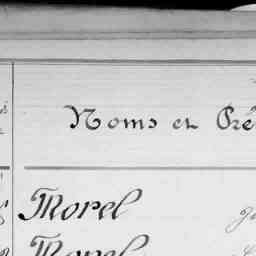 Noms et Pré
Morel
Morel